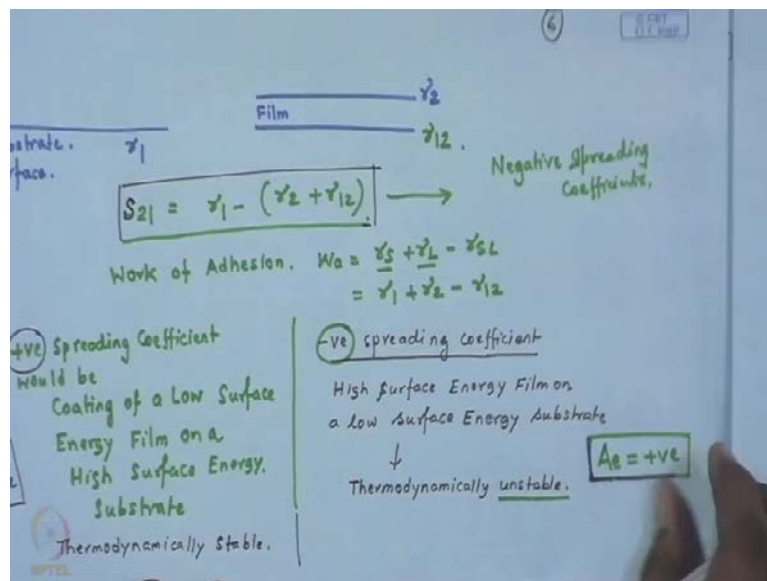 6
Film γ2
γ12.
strate. γ1
face.
S21 = γ1 - (γ2 + γ12). → Negative Spreading
Coefficients.
Work of Adhesion. Wa = γS + γL - γSL
= γ1 + γ2 - γ12
+ve Spreading Coefficient
would be
Coating of a Low Surface
Energy Film on a
High Surface Energy.
Substrate
Thermodynamically Stable.
-ve spreading coefficient
High Surface Energy Film on
a low surface Energy Substrate
↓
Thermodynamically unstable.
Ae = +ve
NPTEL